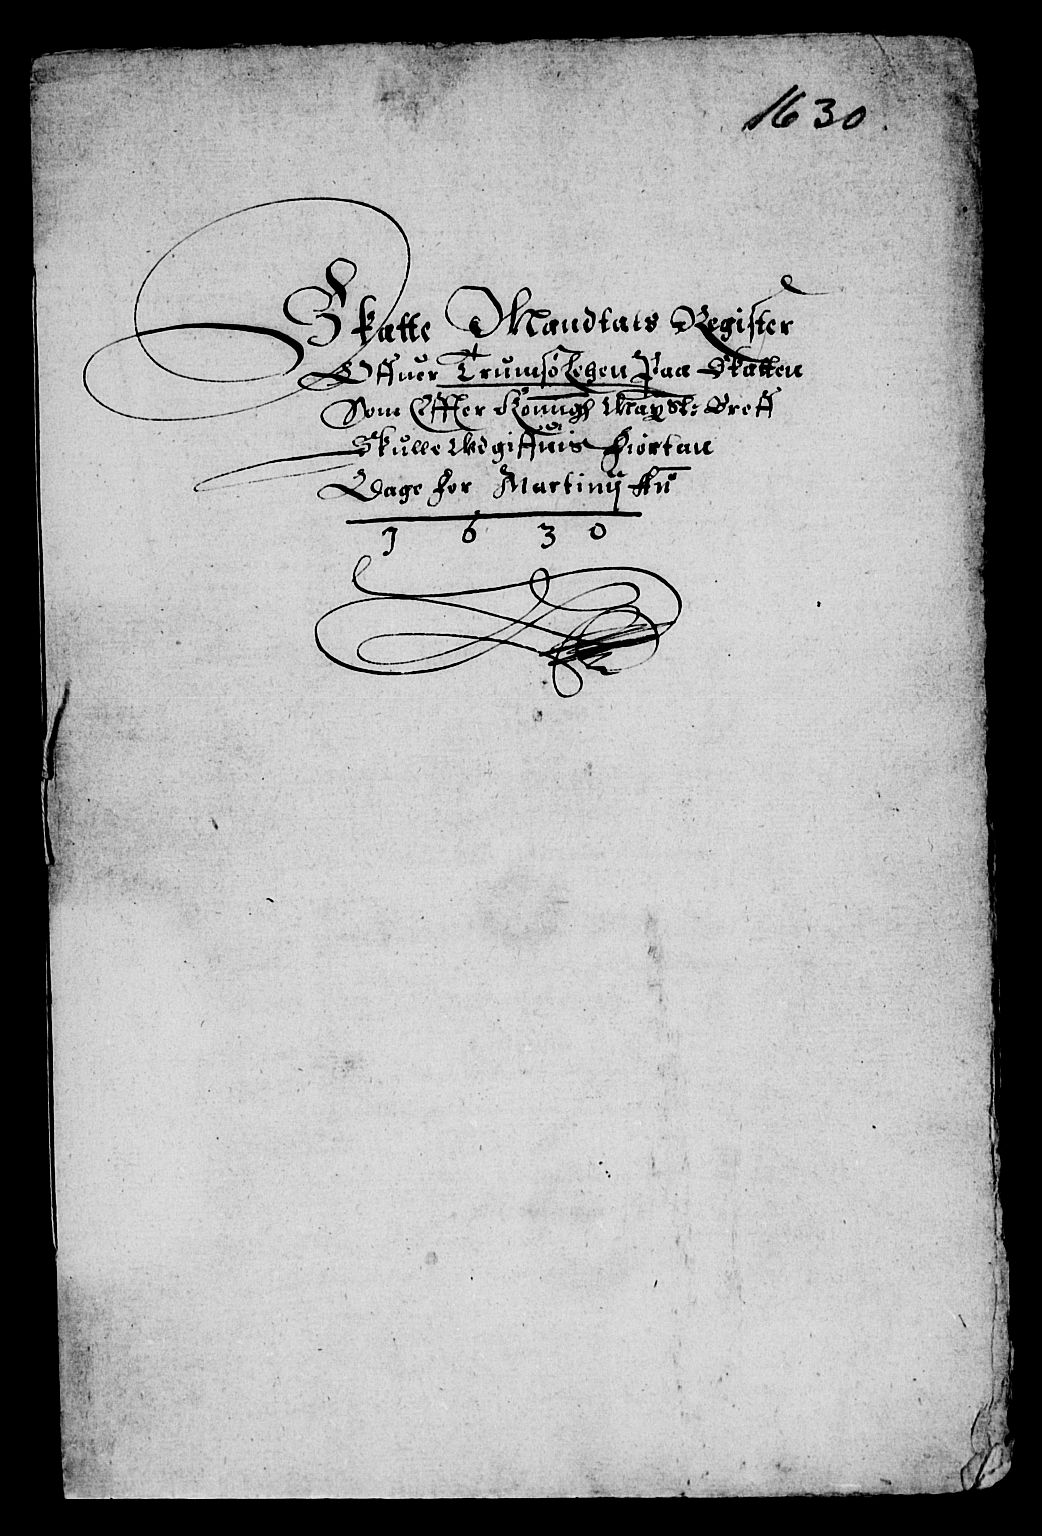 1630.
Skatte Mandtals Register
Offuer Trumsø Lehen Paa Skatten
Som Effter Konngh Mayst: Breff
Skulle Udgiffuis Fiortan
Dage for Martinij Anno
1630